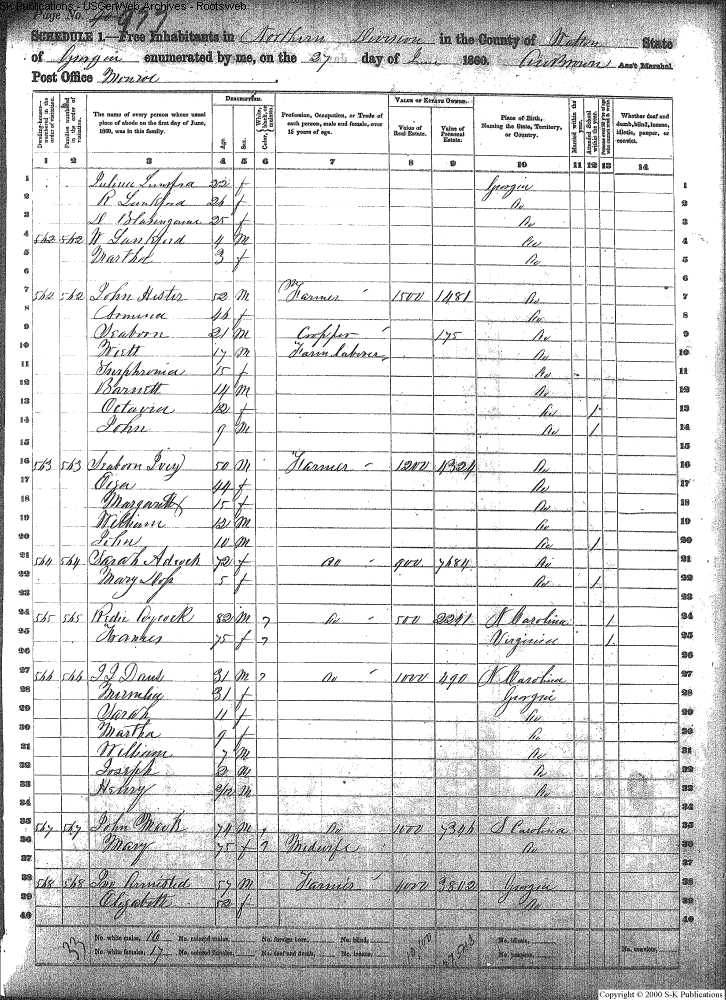 SK Publications - USGenWeb Archives - Rootsweb
Page No. 977
SCHEDULE 1.—Free Inhabitants in Northern Division in the County of Walton State
of Georgia enumerated by me, on the 27 day of June 1860. Ass't Marshal.
Post Office Monroe
Dwelling-houses—numbered in the order of visitation.
Families numbered in the order of visitation.
The name of every person whose usual place of abode on the first day of June, 1860, was in this family.
DESCRIPTION.
Age.
Sex.
Color, White, black, or mulatto.
Profession, Occupation, or Trade of each person, male and female, over 15 years of age.
VALUE OF ESTATE OWNED.
Value of Real Estate.
Value of Personal Estate.
Place of Birth, Naming the State, Territory, or Country.
Married within the year.
Attended School within the year.
Whether deaf and dumb, blind, insane, idiotic, pauper, or convict.
1 2 3 4 5 6 7 8 9 10 11 12 13 14
1 Lunsford 22 f Georgia 1
2 R Lunsford 26 f Do 2
3 Blasengame 25 f Do 3
4 562 562 W Lunsford 4 M Do 4
5 Martha 3 f Do 5
6 6
7 562 562 John Hester 52 M Farmer 1500 1481 Do 7
8 46 f Do 8
9 Seaborn 21 M Cropper 175 Do 9
10 Wiett 17 M Farm Laborer Do 10
11 Surphronia 15 f Do 11
12 Barnett 14 M Do 12
13 Octavia 12 f Do 1 13
14 John 9 M Do 1 14
15 15
16 563 563 Seaborn Ivey 50 M Farmer 1200 4324 Do 16
17 44 f Do 17
18 Margarett 15 f Do 18
19 William 12 M Do 19
20 John 10 M Do 1 20
21 564 564 Sarah Adcock 72 f Do 900 7684 Do 21
22 Mary 5 f Do 1 22
23 23
24 565 565 Aycock 82 M Do 500 2291 N Carolina 1 24
25 Frances 75 f Virginia 1 25
26 26
27 566 566 31 M Do 1000 490 N Carolina 27
28 31 f Georgia 28
29 Sarah 11 f Do 29
30 Martha 9 f Do 30
31 William 7 M Do 31
32 Joseph 2 M Do 32
33 Henry 2/12 M Do 33
34 34
35 567 567 John Mock 74 M Do 1000 7346 S Carolina 35
36 Mary 75 f Midwife Do 36
37 37
38 568 568 Armisted 57 M Farmer 4000 3802 Georgia 38
39 Elizabeth 52 f Do 39
40 40
33 No. white males, 16 No. colored males, No. foreign born, No. blind, No. idiotic,
No. white females, 17 No. colored females, No. deaf and dumb, No. insane, No. paupers, No. convicts,
Copyright © 2000 S-K Publications